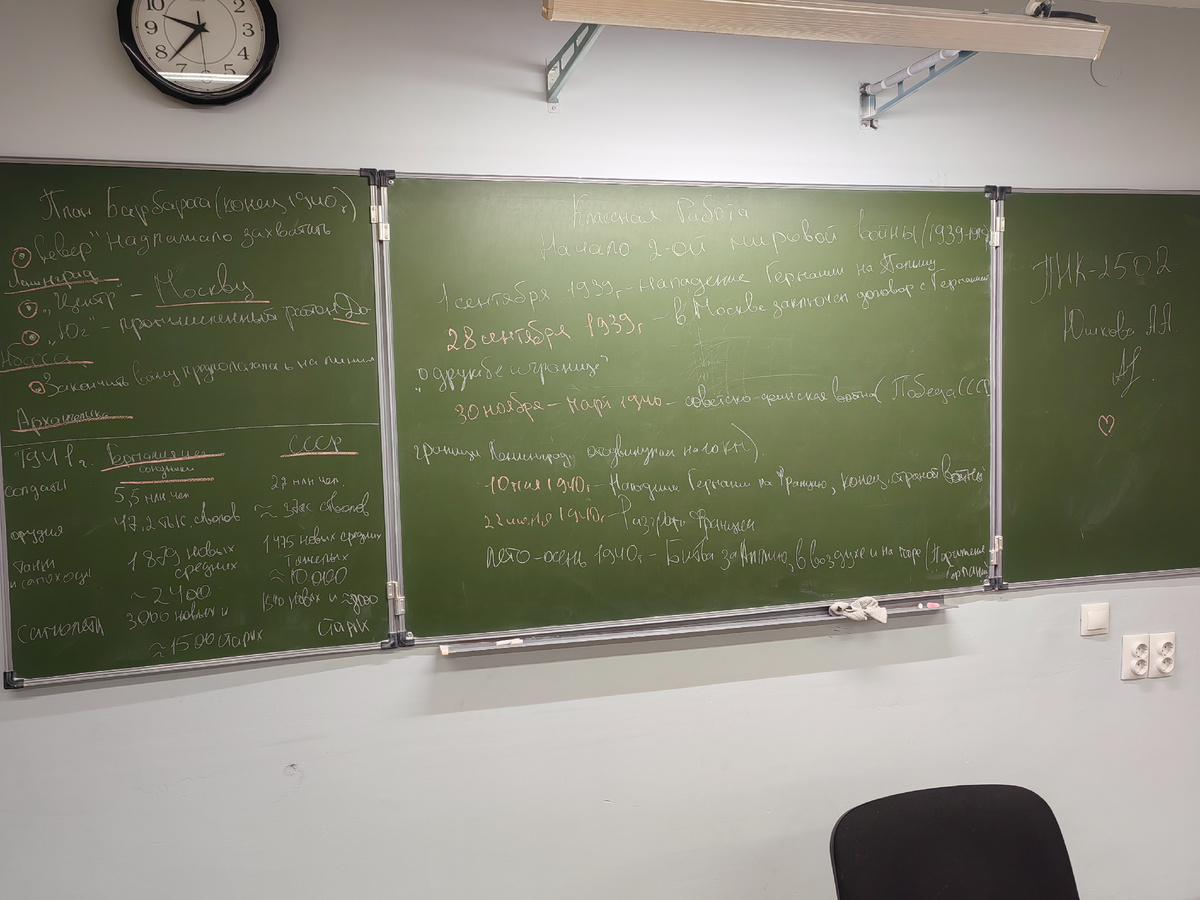 10
9
8
7
6
5
4
3
2
План Барбаросса (конец 1940 г)
"Север" надлежало захватить
Ленинград
"Центр" - Москву
"Юг" - промышленный район До
нбасса
Закончить войну предполагалось на линии
Архангельска
1941 г. Германия СССР
союзники
солдаты 5,5 млн чел 27 млн чел.
орудия 47,2 тыс стволов ≈ 37тыс стволов
танки 1879 новых 1475 новых средних
и самоходы средних тяжелых
~ 2400 ≈ 10.000
самолёты 3000 новых и 1540 новых и ≈
≈ 1500 старых старых
Классная Работа
Начало 2-ой мировой войны (1939-
1 сентября 1939г - Нападение Германии на Польшу
28 сентября 1939г - в Москве заключен договор с Германией
"о дружбе и границе"
30 ноября - март 1940 - советско-финская война (Победа СССР
границу Ленинграду отодвинули на 10 км).
10 мая 1940г - Нападение Германии на Францию, конец странной войны
22 июня 1940г - Разгром Франции
лето-осень 1940г - Битва за Англию, в воздухе и на море (Поражение
Германии
ПИК-2502
Юшкова А.А.